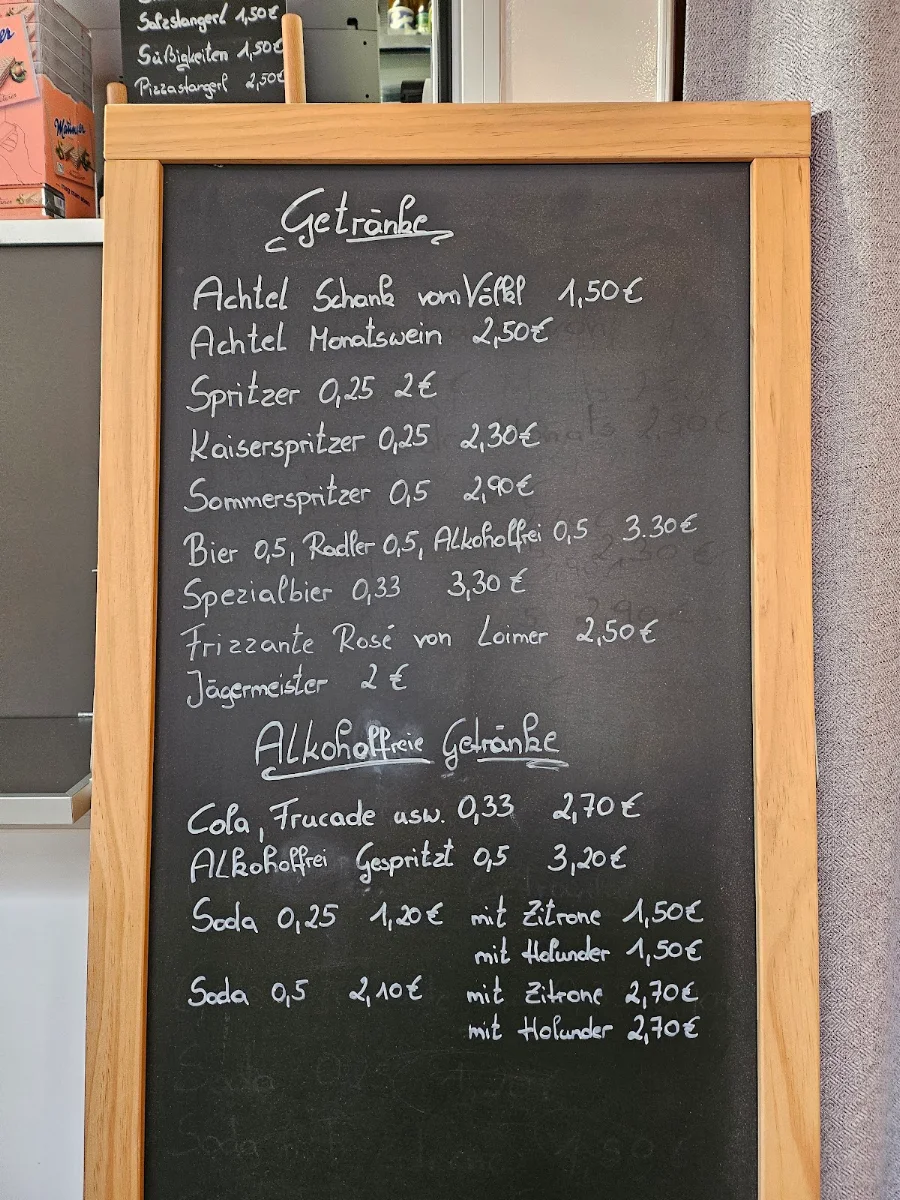 Salzstangerl 1,50€
Süßigkeiten 1,50€
Pizzastangerl 2,50€
Manner
Getränke
Achtel Schank vom Völkl 1,50€
Achtel Monatswein 2,50€
Spritzer 0,25 2€
Kaiserspritzer 0,25 2,30€
Sommerspritzer 0,5 2,90€
Bier 0,5, Radler 0,5, Alkoholfrei 0,5 3.30€
Spezialbier 0,33 3,30€
Frizzante Rosé von Loimer 2,50€
Jägermeister 2€
Alkoholfreie Getränke
Cola, Frucade usw. 0,33 2,70€
Alkoholfrei Gespritzt 0,5 3,20€
Soda 0,25 1,20€ mit Zitrone 1,50€
mit Holunder 1,50€
Soda 0,5 2,10€ mit Zitrone 2,70€
mit Holunder 2,70€